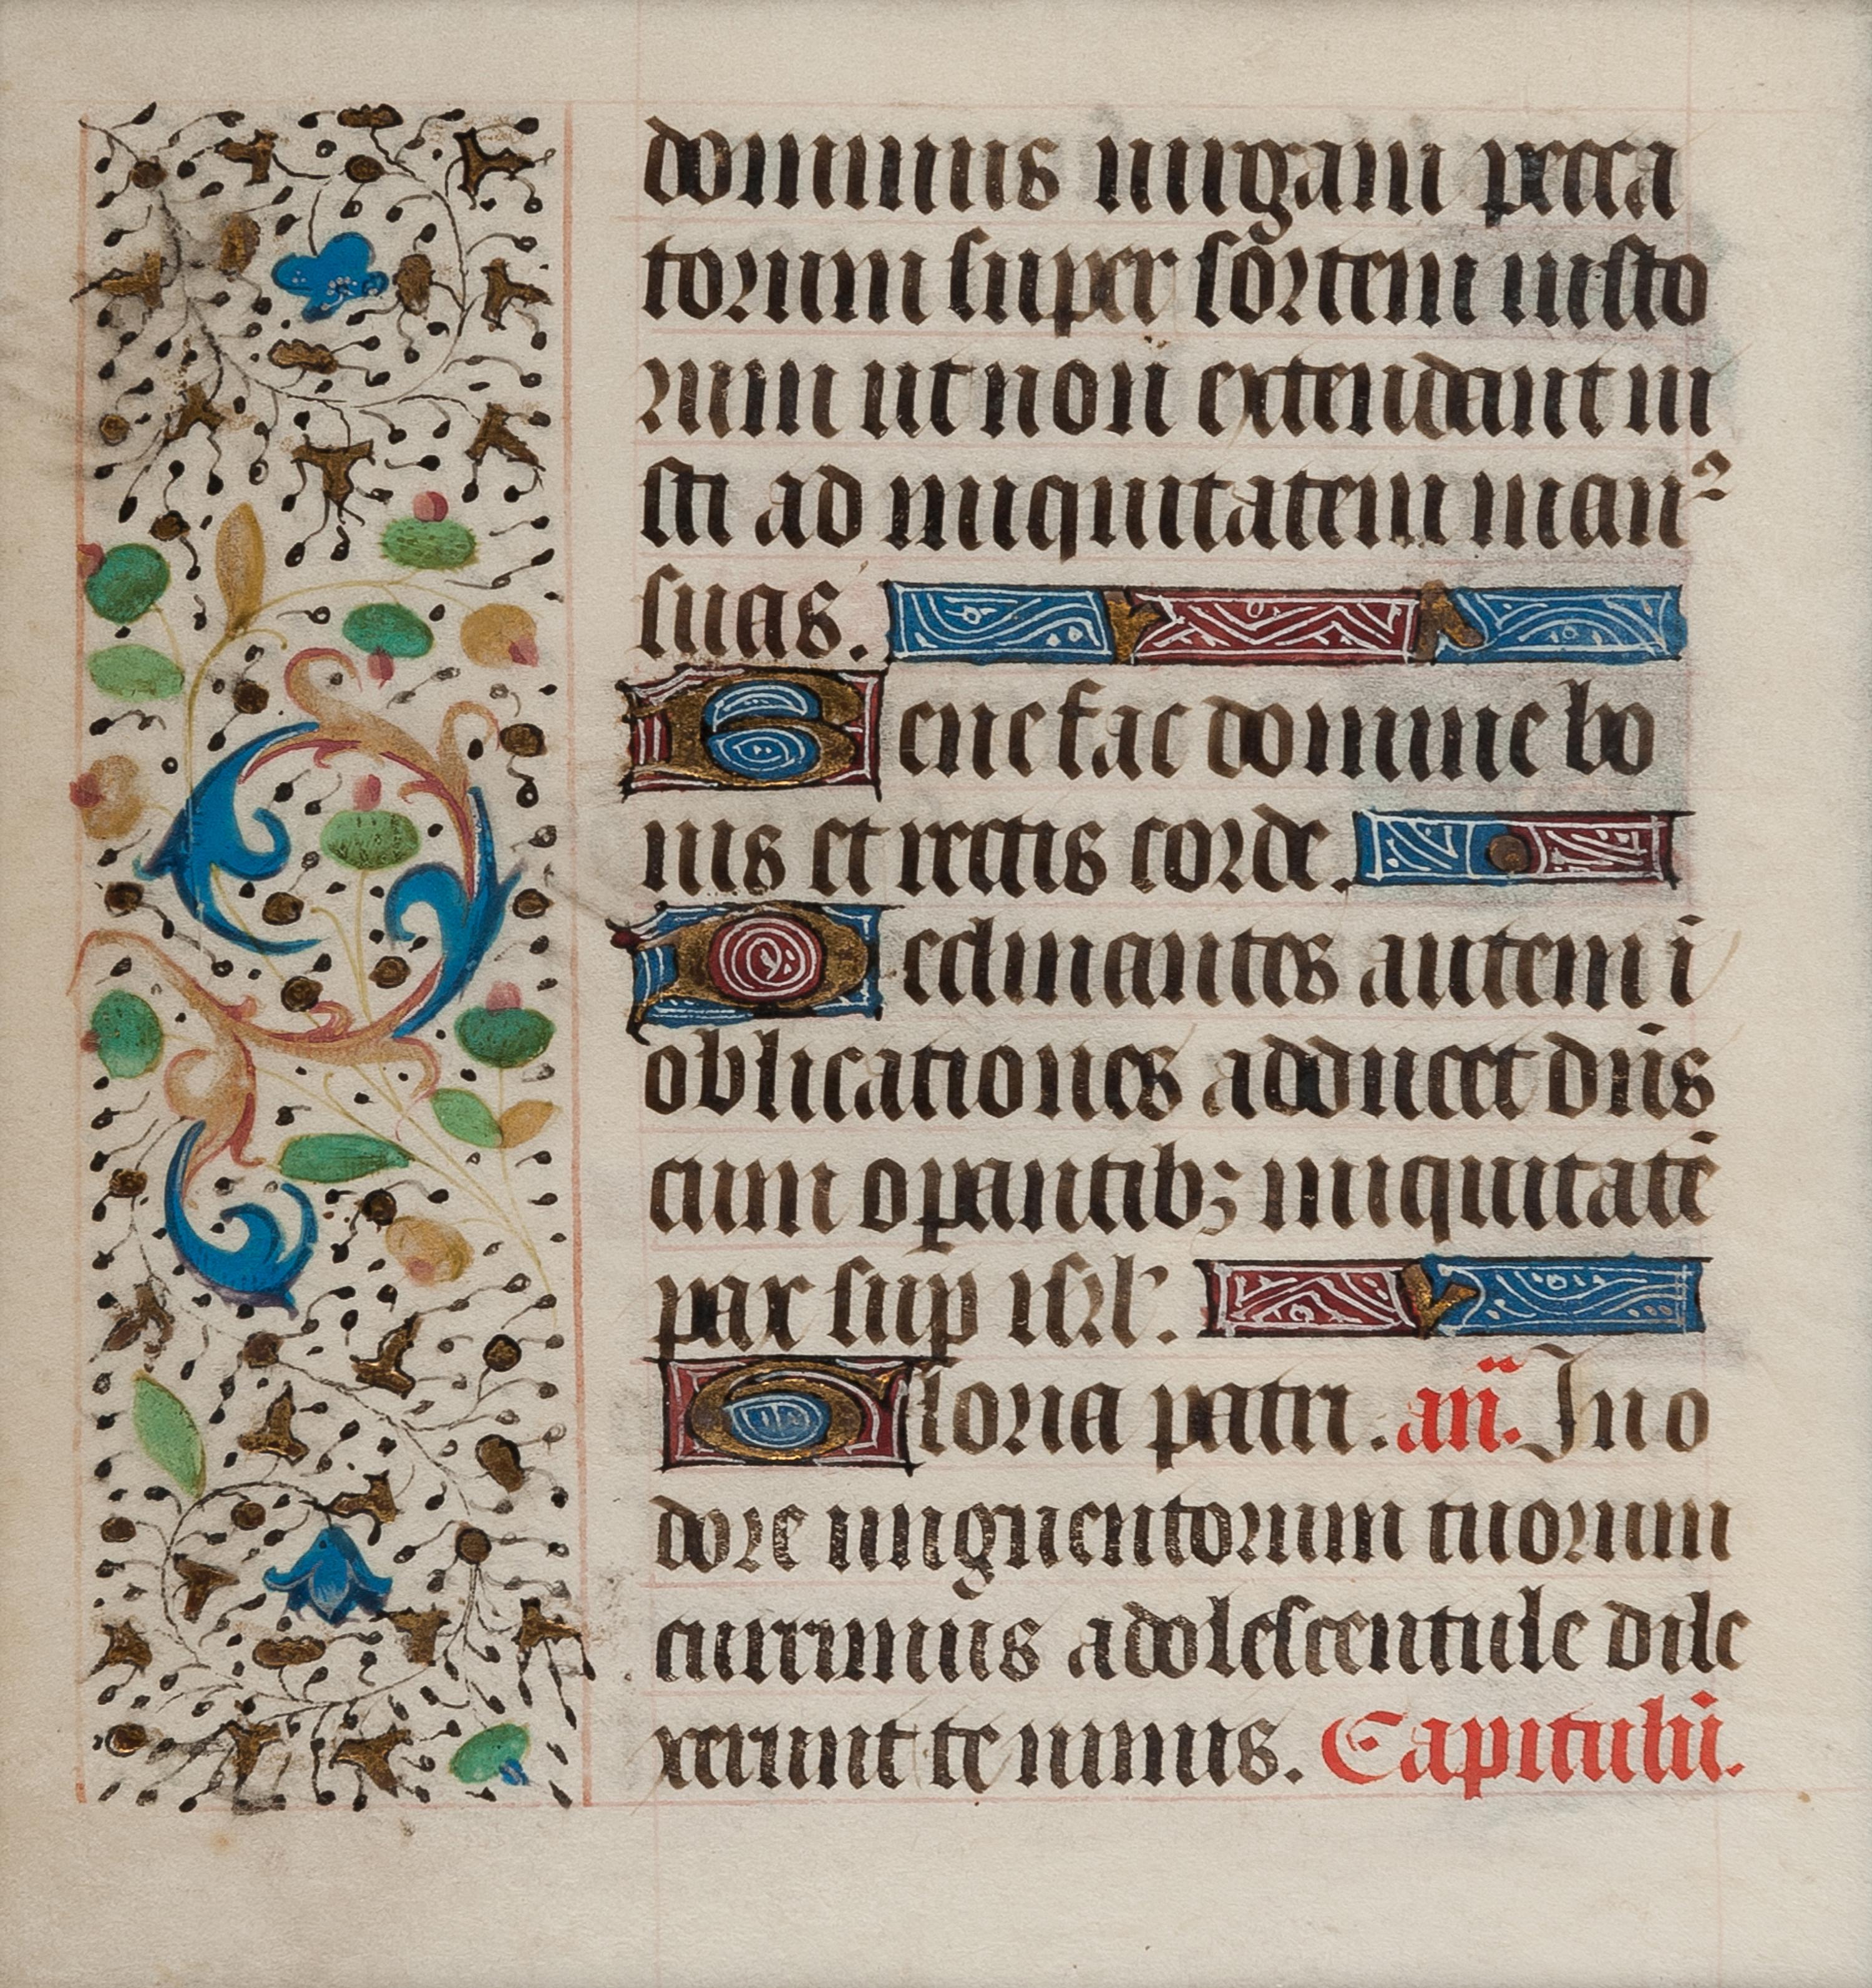 dominus uirgam pecca
torum super sortem iusto
rum ut non extendant iu
sti ad iniquitatem manꝰ
suas.
Benefac domine bo
nis et rectis corde.
Declinantes autem ī
oblicationes adducet dn̄s
cum oꝑantibꝫ iniquitatē
pax suꝑ isrl'.
Gloria patri. an̄. In o
dore unguentorum tuorum
currimus adolescentule dile
xerunt te nimis. Capitulū.